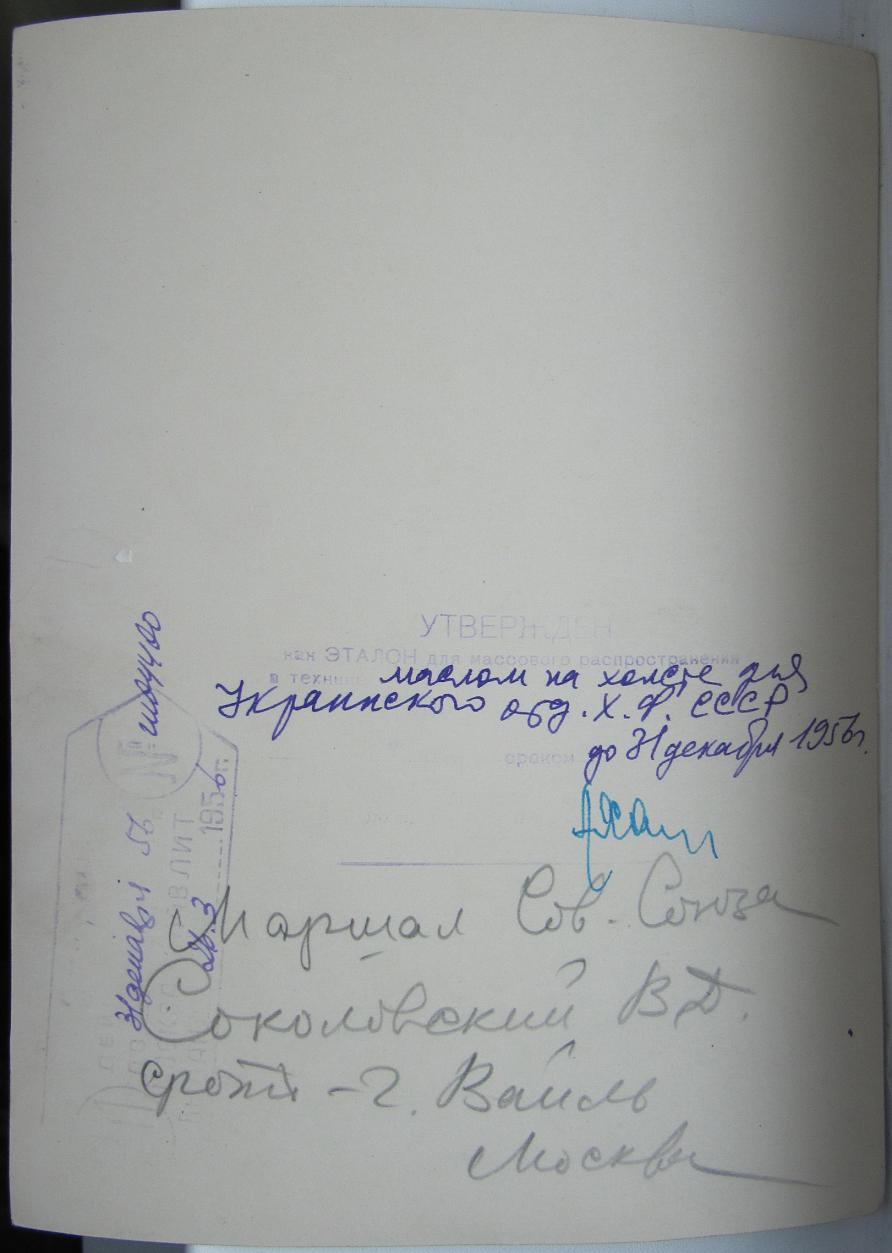 УТВЕРЖДЕН
как ЭТАЛОН для массового распространения
в техни
маслом на холсте для
Украинского отд. Х.Ф. СССР
сроком
до 31 декабря 1956 г.
Маршал Сов. Союза
Соколовский ВД.
фото - Г. Вайль
Москва
№
31 декабря 56
1956 г.